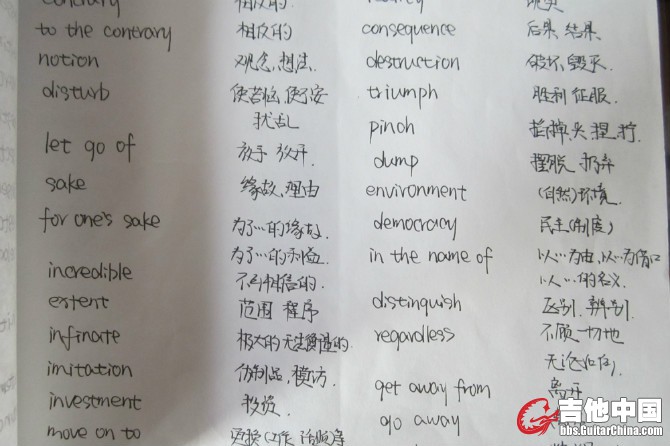 contrary 相反的.
to the contrary 相反的
notion 观念,想法.
disturb 使苦恼,使不安
扰乱
let go of 放手 放开.
sake 缘故,理由
for one's sake 为了…的缘故.
为了…的利益.
incredible 不可相信的.
extent 范围 程序
infinate 极大的 无法衡量的.
imitation 仿制品,模仿.
investment 投资.
move on to 更换(工作
consequence 后果,结果.
destruction 破坏,毁灭.
triumph 胜利 征服.
pinch 捏
dump 摆脱 扔弃
environment (自然)环境.
democracy 民主(制度)
in the name of 以…为由,以…为借口
以…的名义.
distinguish 区别.辨别.
regardless 不顾一切地
无论如何.
get away from 离开
go away
吉他中国
bbs.GuitarChina.com